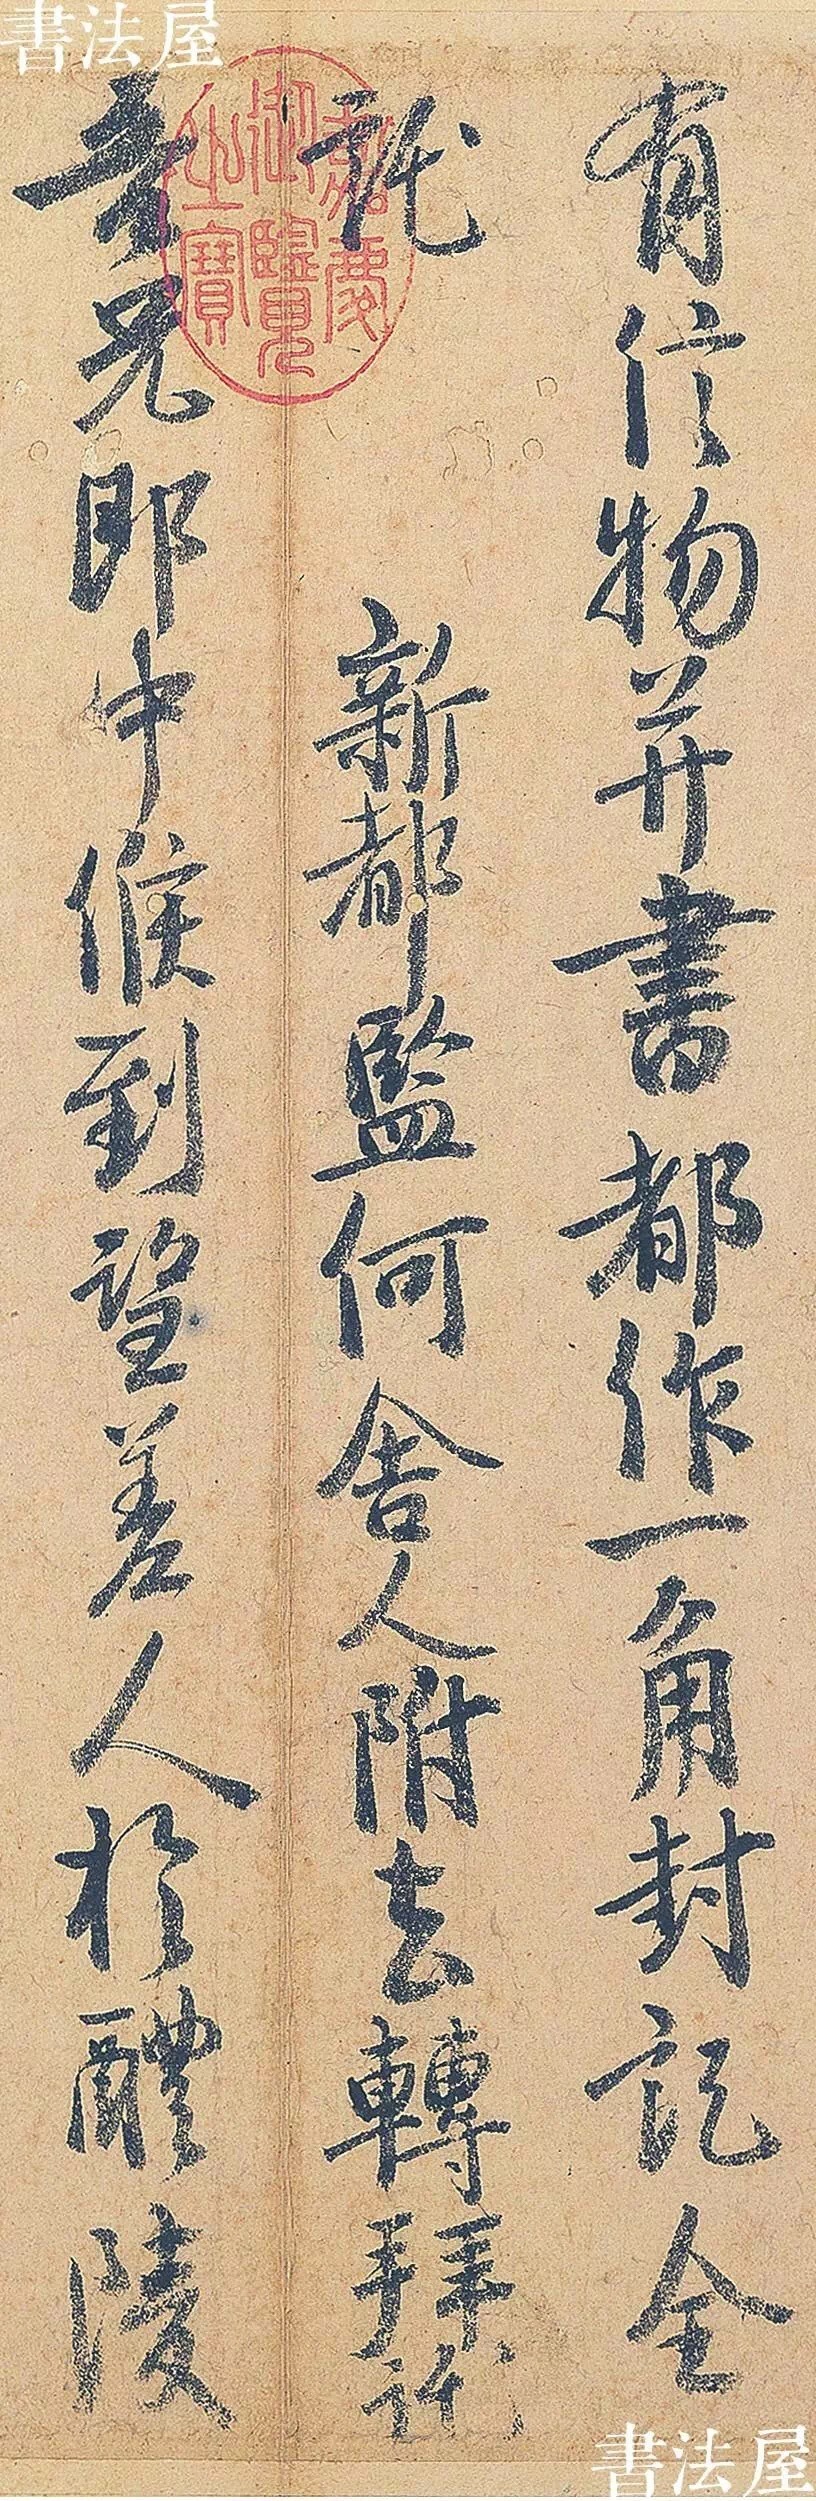 書法屋
有信物并書都作一角封記全
託 新都監何舍人附去轉拜託
吾兄郎中候到望差人於醴陵
嘉慶
御覽
之寶
書法屋